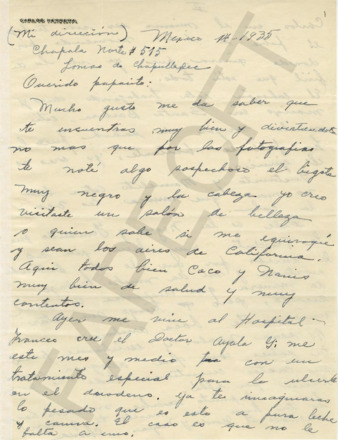 (Mi dirección) Mexico 14-1935
Chapala Norte # 515
Lomas de Chapultepec
Querido papaito:
Mucho gusto me da saber que
te encuentras muy bien y divirtiendote
no mas que por las fotografias
te noté algo sospechoso el bigote
muy negro y la cabeza yo creo
visitaste un salón de belleza
o quien sabe si me equivoqué
y sean los aires de California.
Aqui todos bien Caco y
muy bien de salud y muy
contentos.
Ayer me vine al Hospital
Frances el Doctor Ayala G. me
este mes y medio con un
tratamiento especial para la ulcerita
en el duodeno. ya te imaginaras
lo pesado que es esto a pura leche
y cama. El caso es que no le
falta a uno.
FAPECFT